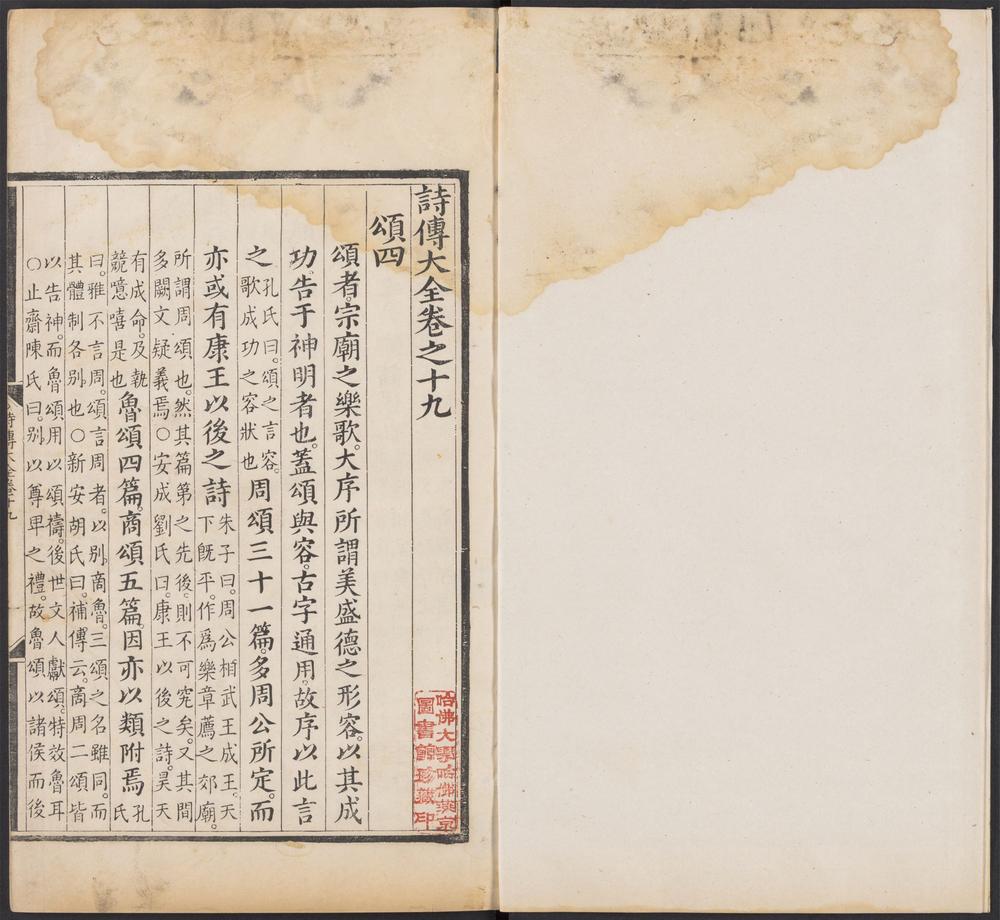 詩傳大全卷之十九
頌四
頌者。宗廟之樂歌。大序所謂美盛德之形容。以其成
功。告于神明者也。蓋頌與容。古字通用。故序以此言
之
孔氏曰。頌之言容。
歌成功之容狀也
周頌三十一篇。多周公所定。而
亦或有康王以後之詩
朱子曰。周公相武王成王。天
下既平。作爲樂章薦之郊廟。
所謂周頌也。然其篇第之先後。則不可究矣。又其間
多闕文疑義焉○安成劉氏曰。康王以後之詩。昊天
有成命。及執
競噫嘻是也
魯頌四篇。商頌五篇。因亦以類附焉
孔
氏
曰。雅不言周。頌言周者。以别商魯。三頌之名雖同。而
其體制各别也○新安胡氏曰。補傳云。商周二頌皆
以告神。而魯頌用以頌禱。後世文人獻頌。特效魯耳
○止齋陳氏曰。别以尊卑之禮。故魯頌以諸侯而後
詩傳大全卷十九
哈佛大學哈佛燕京
圖書館珍藏印